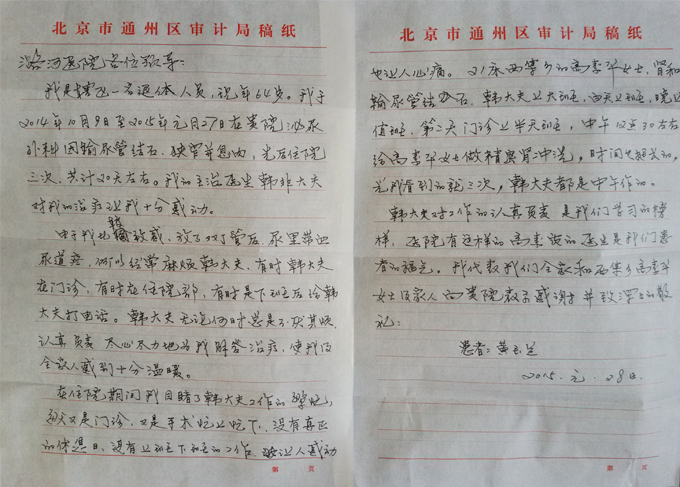 北京市通州区审计局稿纸
潞河医院各位领导:
我是辖区一名退休人员,现年64岁。我于
2014年10月9日至2015年元月27日在贵院泌尿
外科因输尿管结石、狭窄并息肉,先后住院
三次,共计20天左右。我的主治医生韩非大夫
对我的治疗让我十分感动。
由于我比较敏感,放了双J管后,尿里带血
尿道疼,所以经常麻烦韩大夫,有时韩大夫
在门诊,有时在住院部,有时是下班后给韩
大夫打电话。韩大夫无论何时总是不厌其烦、
认真负责、尽心尽力地为我解答治疗,使我及
全家人感到十分温暖。
在住院期间我目睹了韩大夫工作的
每天又是门诊,又是手术忙上忙下,没有真正
的休息日,没有上班下班的工作,让人感动
第 页
北京市通州区审计局稿纸
也让人心痛。21床西集乡的高季华女士,肾和
输尿管结石,韩大夫上大班,白天上班,晚上
值班,第二天门诊上半天班,中午12点30左右
给高季华女士做精囊肾冲洗,时间挺长的,
光我看到的就三次,韩大夫都是中午作的。
韩大夫对工作的认真负责是我们学习的榜
样,医院有这样的高素质的医生是我们患
者的福气。我代表我们全家和西集乡高季华
女士及家人向贵院表示感谢并致深深的敬
礼:
患者:黄玉兰
2015.元.28日
第 页